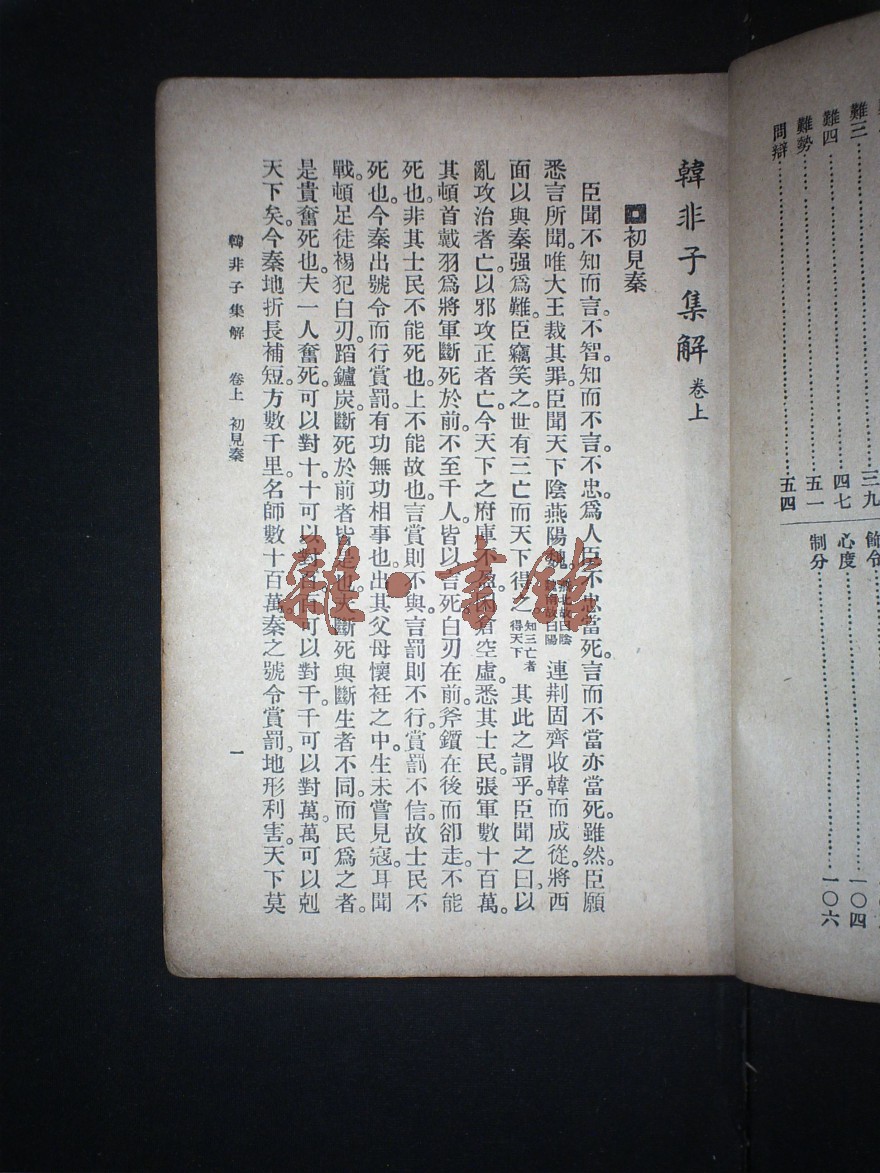 難三……三九
難四……四七
難勢……五一
問辯……五四
心度……一〇四
制分……一〇六
韓非子集解 卷上
初見秦
臣聞不知而言。不智。知而不言。不忠。爲人臣不忠當死。言而不當亦當死。雖然。臣願
悉言所聞。唯大王裁其罪。臣聞天下陰燕陽魏。連荆固齊收韓而成從。將西
面以與秦强爲難。臣竊笑之。世有三亡而天下得之知三亡者得天下其此之謂乎。臣聞之曰。以
亂攻治者亡。以邪攻正者亡。今天下之府庫不盈。囷倉空虛。悉其士民。張軍數十百萬。
其頓首戴羽爲將軍斷死於前。不至千人。皆以言死。白刃在前。斧鑕在後而卻走。不能
死也。非其士民不能死也。上不能故也。言賞則不與。言罰則不行。賞罰不信。故士民不
死也。今秦出號令而行賞罰。有功無功相事也。出其父母懷衽之中。生未嘗見寇。耳聞
戰。頓足徒裼犯白刃。蹈鑪炭。斷死於前者皆是也。夫斷死與斷生者不同。而民爲之者。
是貴奮死也。夫一人奮死。可以對十。十可以對百。百可以對千。千可以對萬。萬可以剋
天下矣。今秦地折長補短。方數千里。名師數十百萬。秦之號令賞罰。地形利害。天下莫
韓非子集解 卷上 初見秦 一
雜·書館